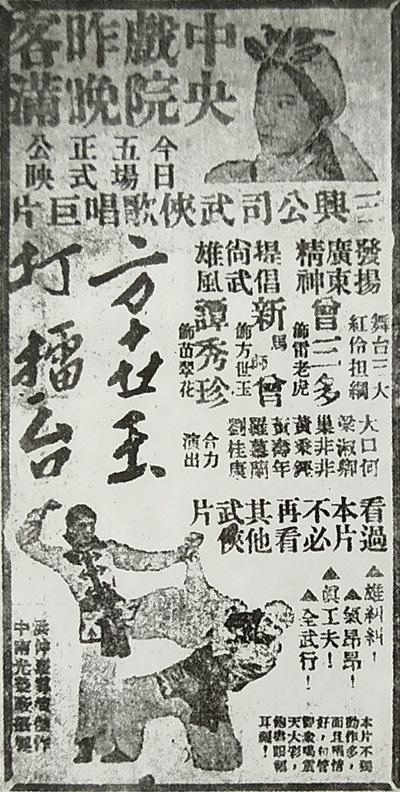 中央戲院昨晚客滿
今日五場正式公映
三興公司武俠歌唱巨片
發揚廣東精神
提倡尚武雄風
舞台三大紅伶担綱
曾三多
飾雷老虎
新馬師曾
飾方世玉
譚秀珍
飾苗翠花
大口何
梁淑卿
巢非非
黃秉鏗
黃壽年
羅慕蘭
劉桂康
合力演出
方世玉
打擂台
看過本片不必再看其他武俠片
▲雄糾糾!
▲氣昂昂!
▲真工夫!
▲全武行!
本片不獨
動作多,
而且唱情
好,
天大彩,
洪仲豪導演傑作